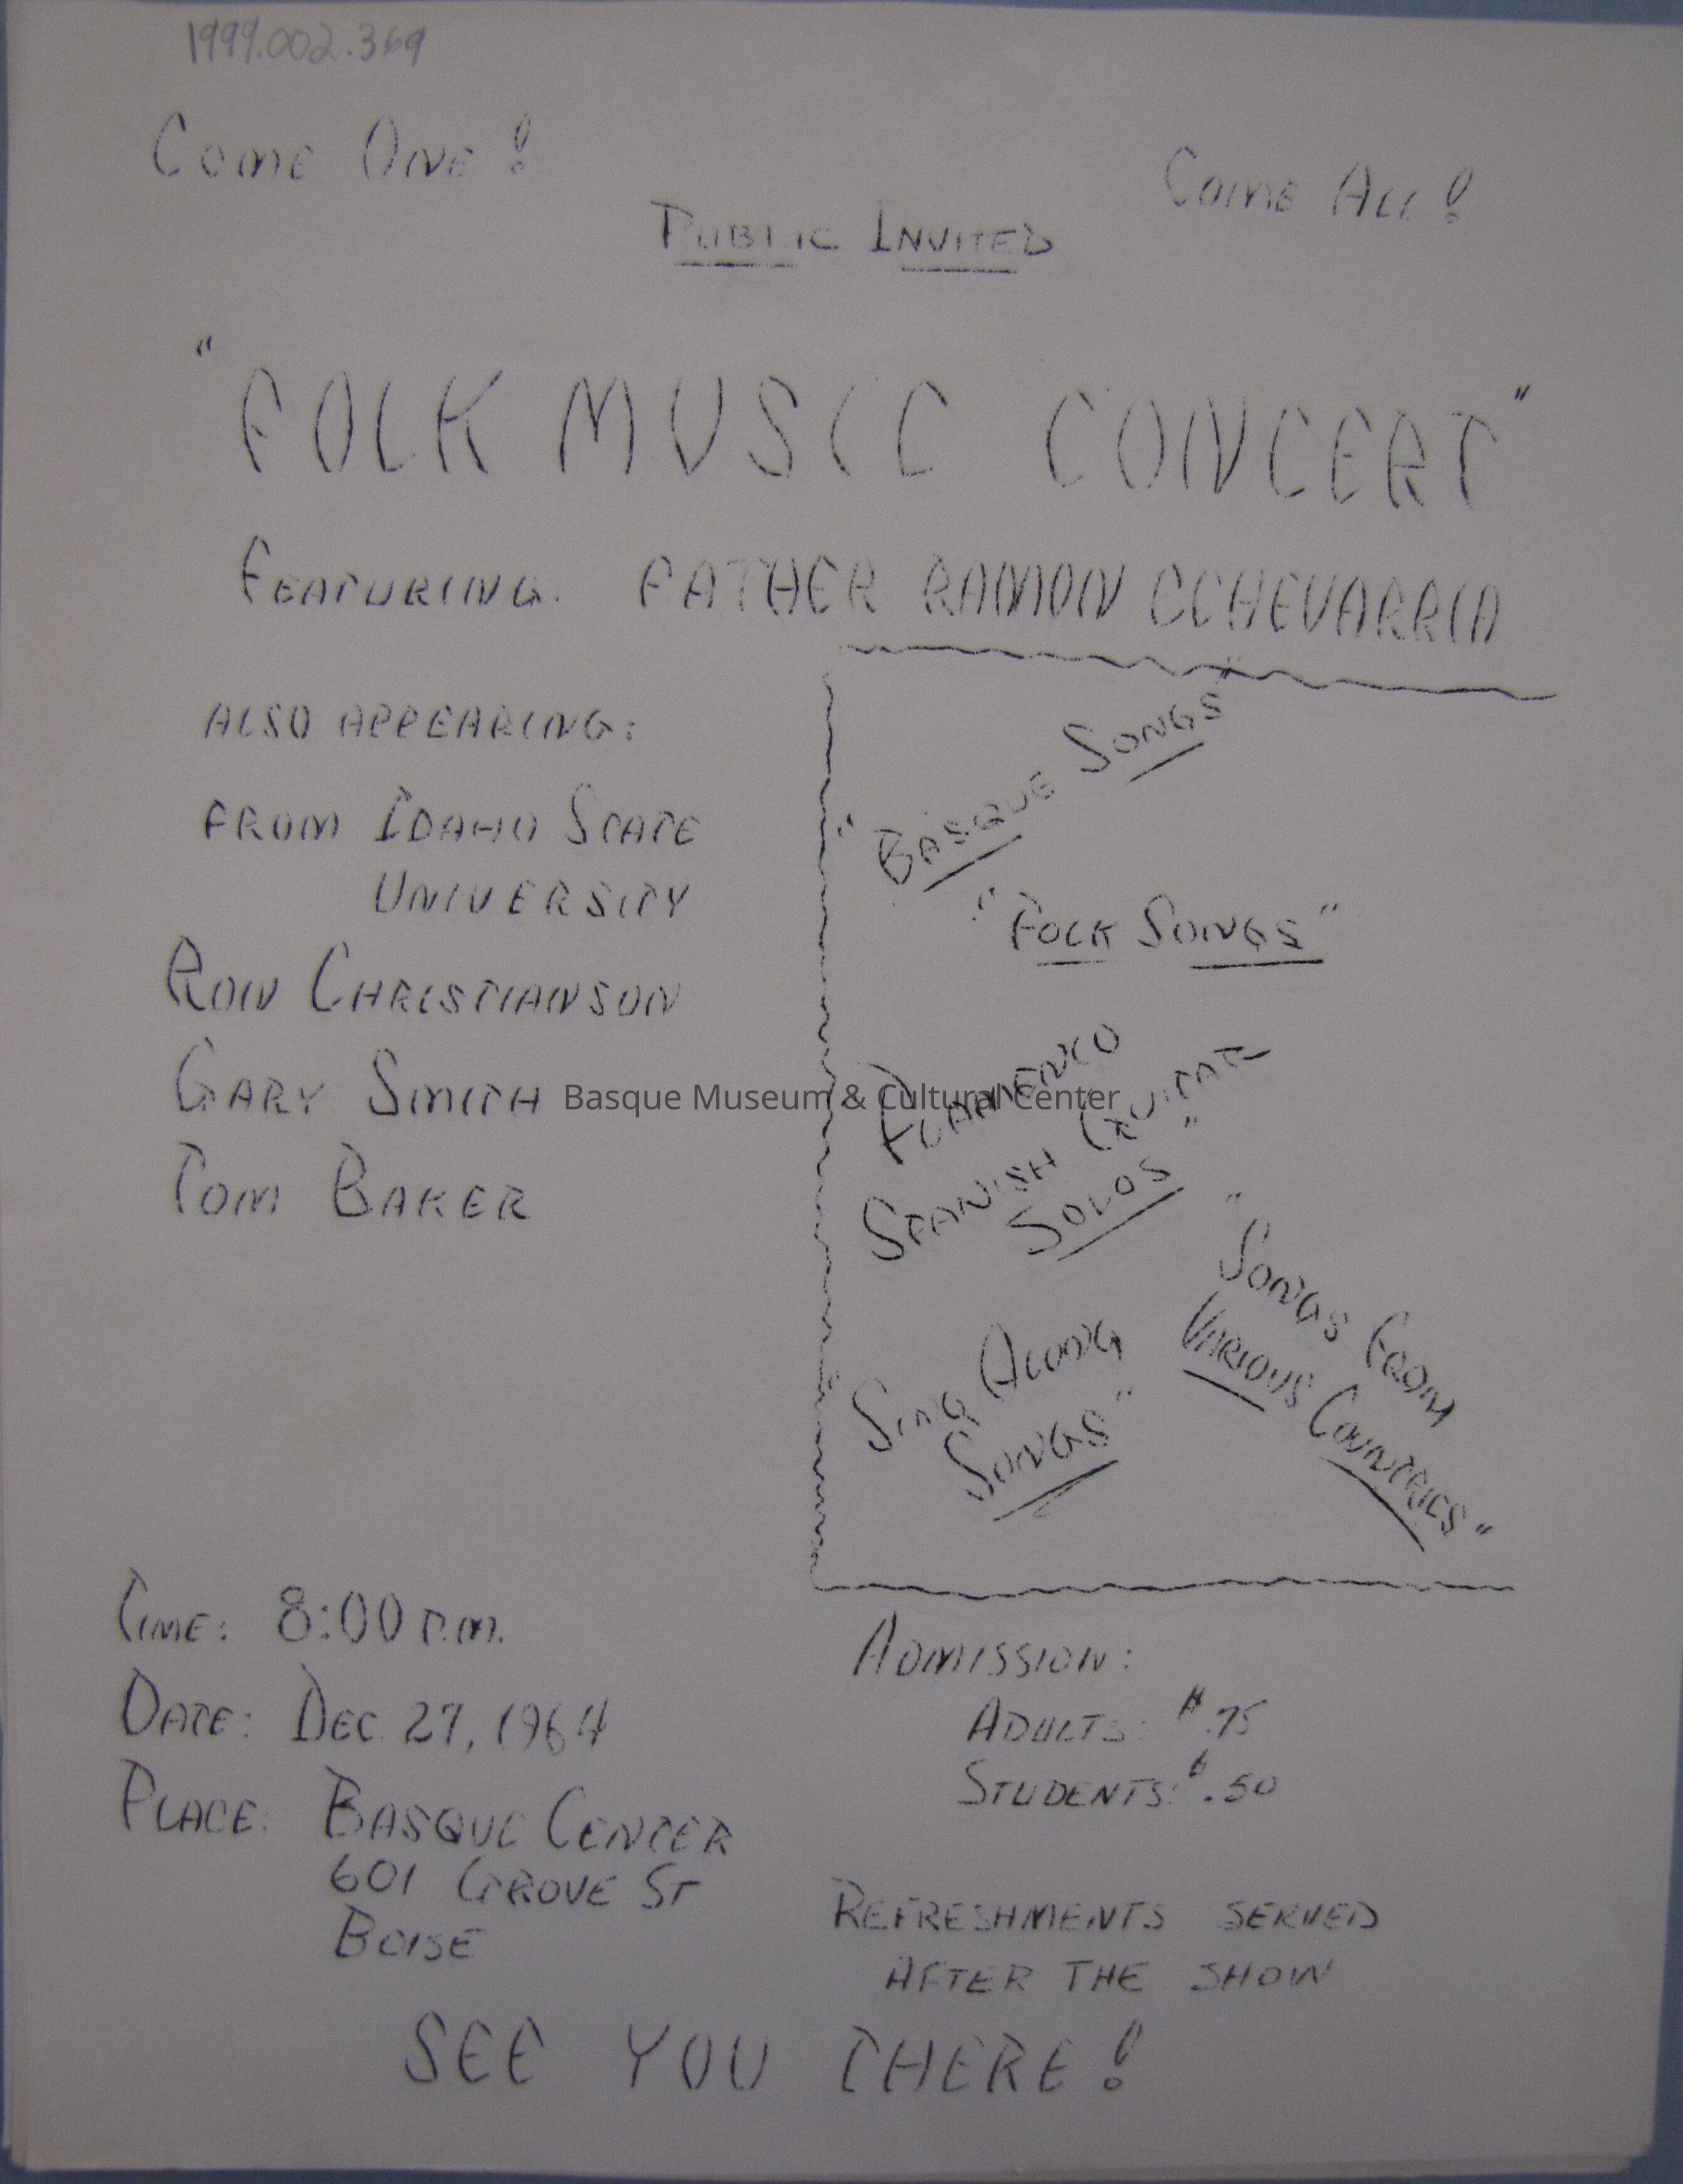 1999.002.369
Come One!
Come All!
Public Invited
"FOLK MUSIC CONCERT"
FEATURING: FATHER RAMON ECHEVARRIA
ALSO APPEARING:
FROM IDAHO STATE
UNIVERSITY
RON CHRISTIANSON
GARY SMITH
TOM BAKER
"BASQUE SONGS"
"FOLK SONGS"
FLAMENCO
SPANISH GUITAR
SOLOS"
SING ALONG
SONGS"
"SONGS FROM
VARIOUS COUNTRIES"
Basque Museum & Cultural Center
TIME: 8:00 P.M.
DATE: DEC. 27, 1964
PLACE: BASQUE CENTER
601 GROVE ST
BOISE
ADMISSION:
ADULTS: $.75
STUDENTS: $.50
REFRESHMENTS SERVED
AFTER THE SHOW
SEE YOU THERE!